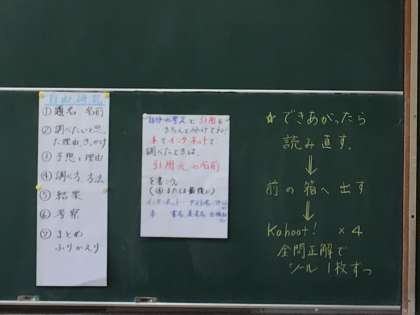 自由研究
① 題名、名前
② 調べたいと思った理由、きっかけ
③ 予想と理由
④ 調べ方、方法
⑤ 結果
⑥ 考察
⑦ まとめ
ふりかえり
自分の考えと引用を
きちんと分けて書く
本やインターネットで
調べたときは、
引用元の名前
を書く。
☆できあがったら
読み直す。
⇓
前の箱へ出す
⇓
Kahoot! ×4
全問正解で
シール1枚ずつ